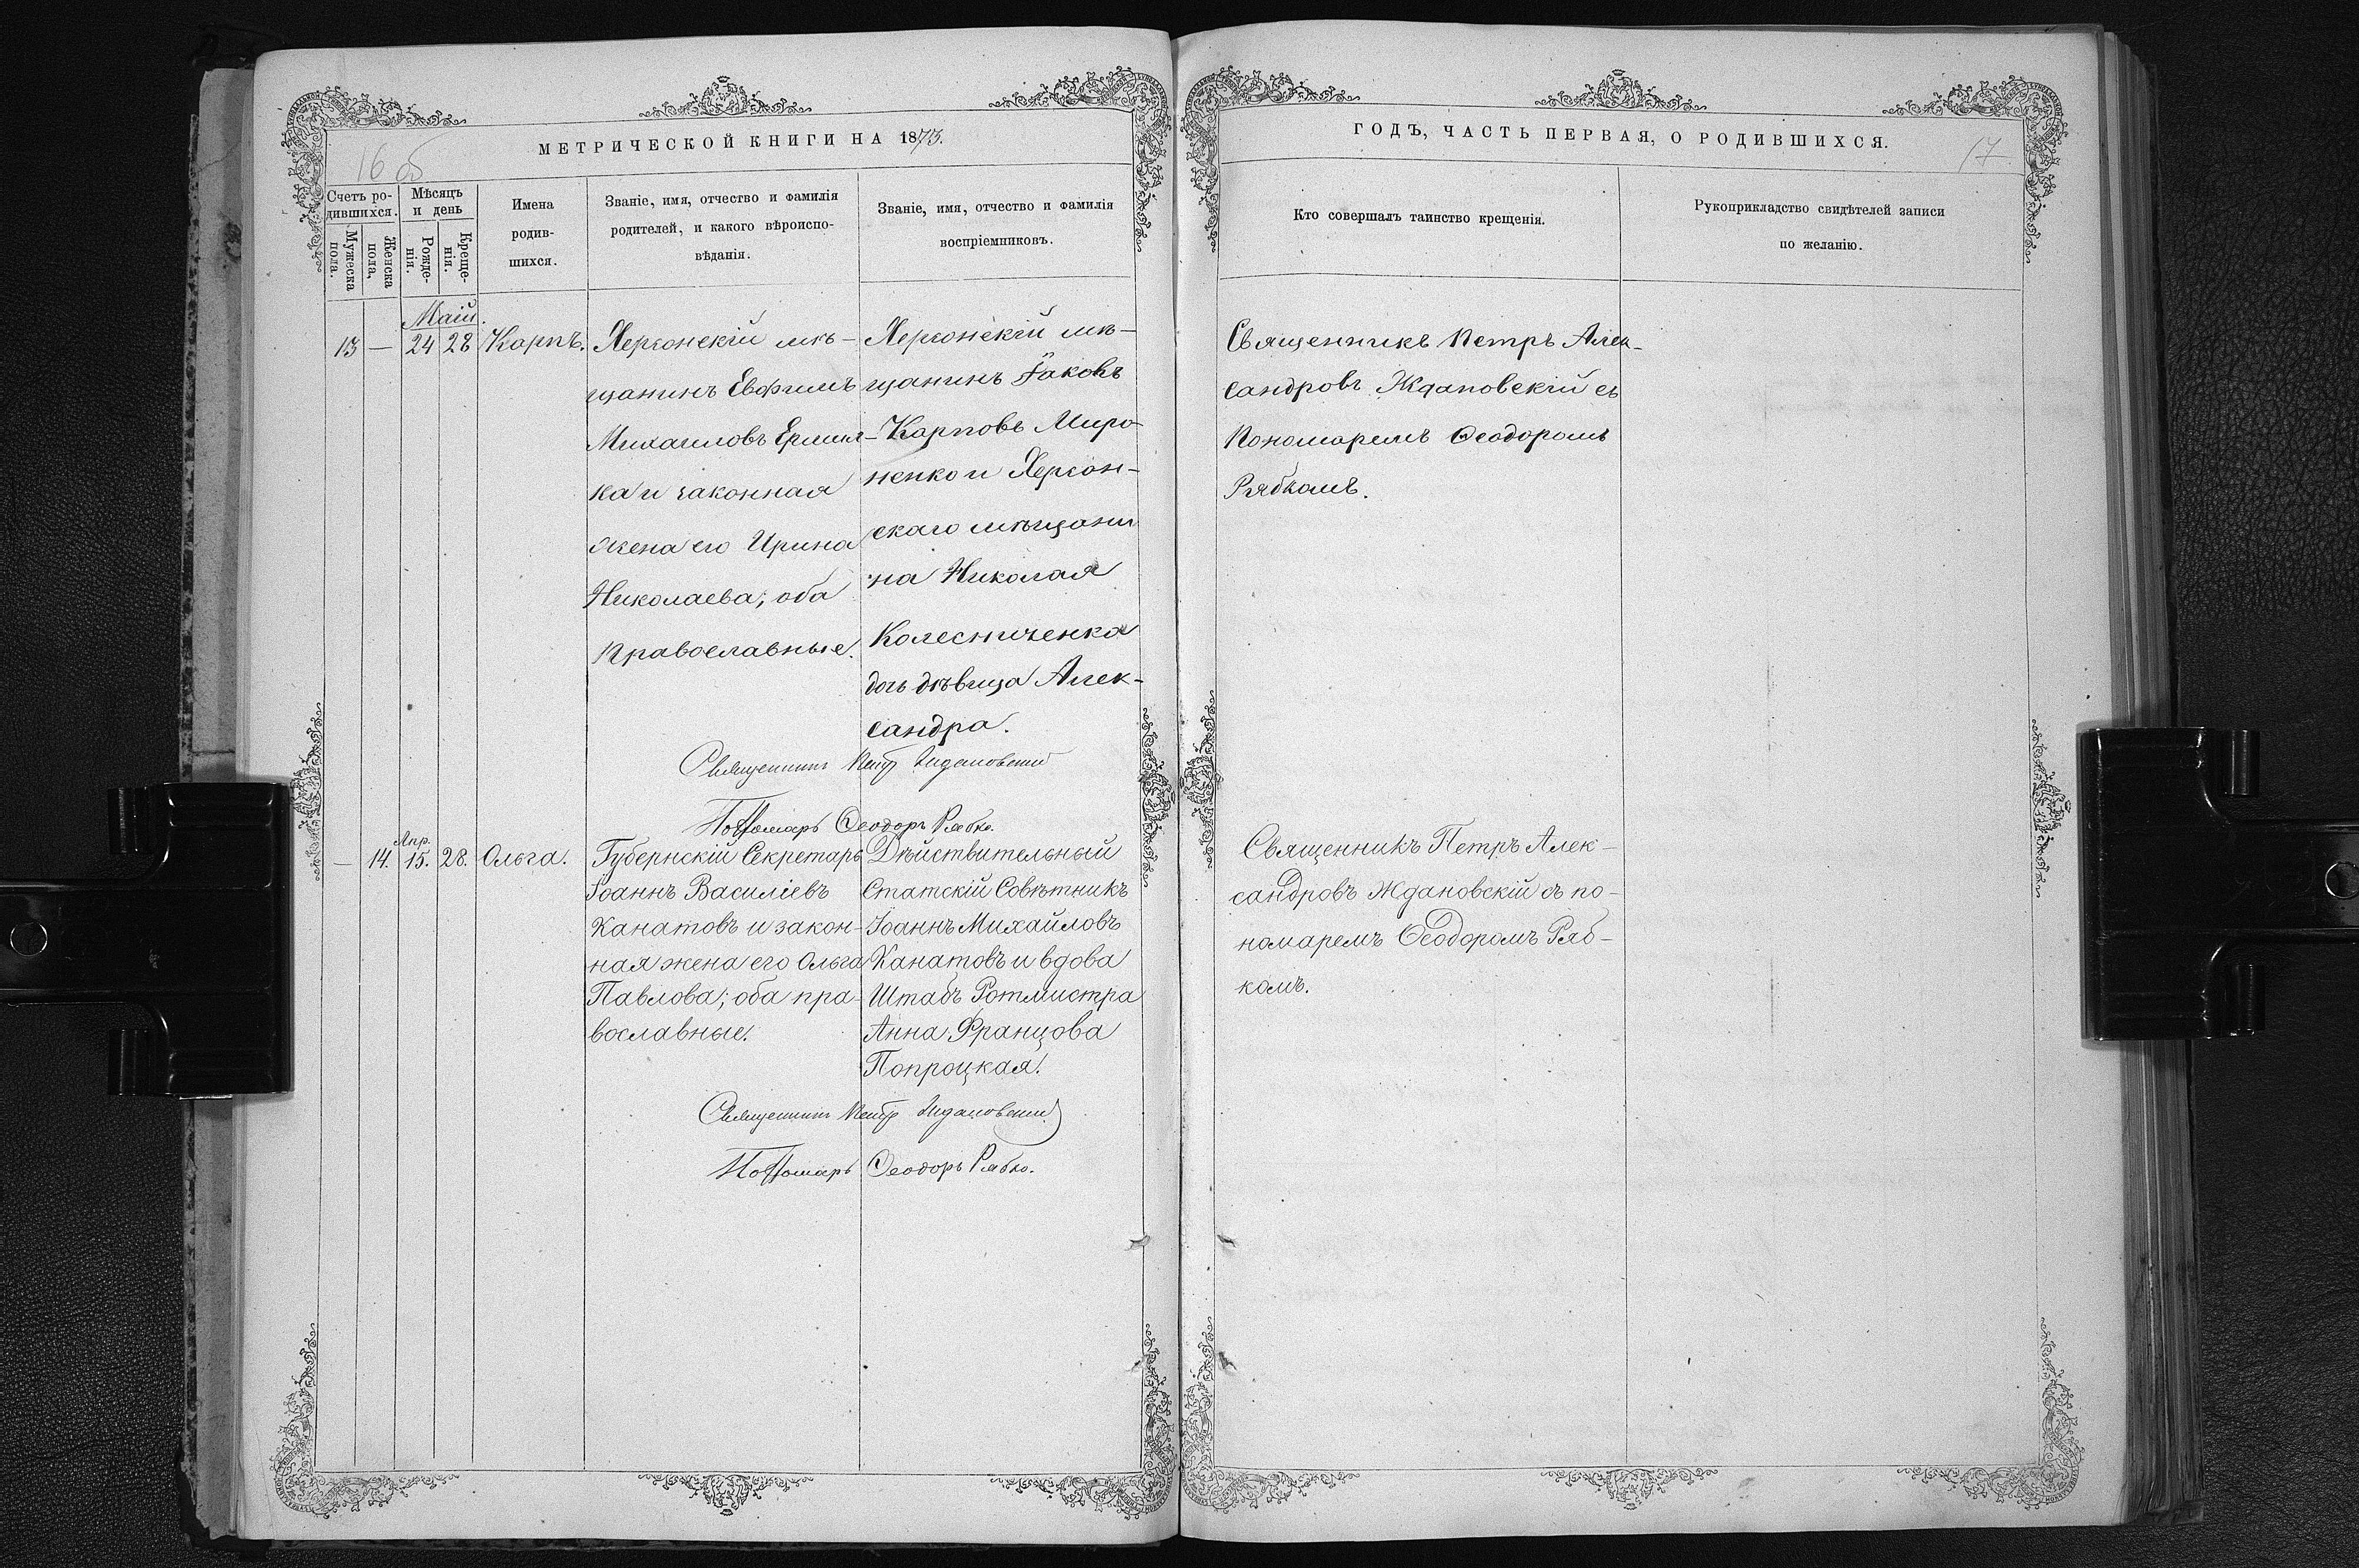 МЕТРИЧЕСКОЙ КНИГИ НА 1873.
16 об
Счетъ ро-
дившихся.
Мужеска
пола.
Женска
пола,
Мѣсяцъ
и день
Рожде-
нія.
Креще-
нія.
Имена
родив-
шихся.
Званіе, имя, отчество и фамилія
родителей, и какого вѣроиспо-
вѣданія.
Званіе, имя, отчество и фамилія
воспріемниковъ.
Май.
13 — 24 28 Карпъ.
Херсонскій мѣ-
щанинъ Евфимъ
Михаиловъ
ка и законная
жена его Ирина
Николаева; оба
православные.
Херсонскій мѣ-
щанинъ Іаковъ
Карповъ Миро-
ненко и Херсон-
скаго мѣщани
на Николая
Колесниченка
дочь дѣвица Алек-
сандра.
Священникъ Петръ Ждановскій
Пономарь Ѳеодоръ Рябко.
Апр.
— 14. 15. 28. Ольга.
Губернскій Секретарь
Іоаннъ Василіевъ
Канатовъ и закон-
ная жена его Ольга
Павлова; оба пра-
вославные.
Дѣйствительный
Статскій Совѣтникъ
Іоаннъ Михайловъ
Канатовъ и вдова
Штабъ Ротмистра
Анна Францова
Попроцкая.
Священникъ Петръ Ждановскій
Пономарь Ѳеодоръ Рябко.
ГОДЪ, ЧАСТЬ ПЕРВАЯ, О РОДИВШИХСЯ.
17
Кто совершалъ таинство крещенія.
Рукоприкладство свидѣтелей записи
по желанію.
Священникъ Петръ Алек-
сандровъ Ждановскій съ
Пономаремъ Ѳеодоромъ
Рябкомъ.
Священникъ Петръ Алек-
сандровъ Ждановскій съ по-
номаремъ Ѳеодоромъ Ряб-
комъ.